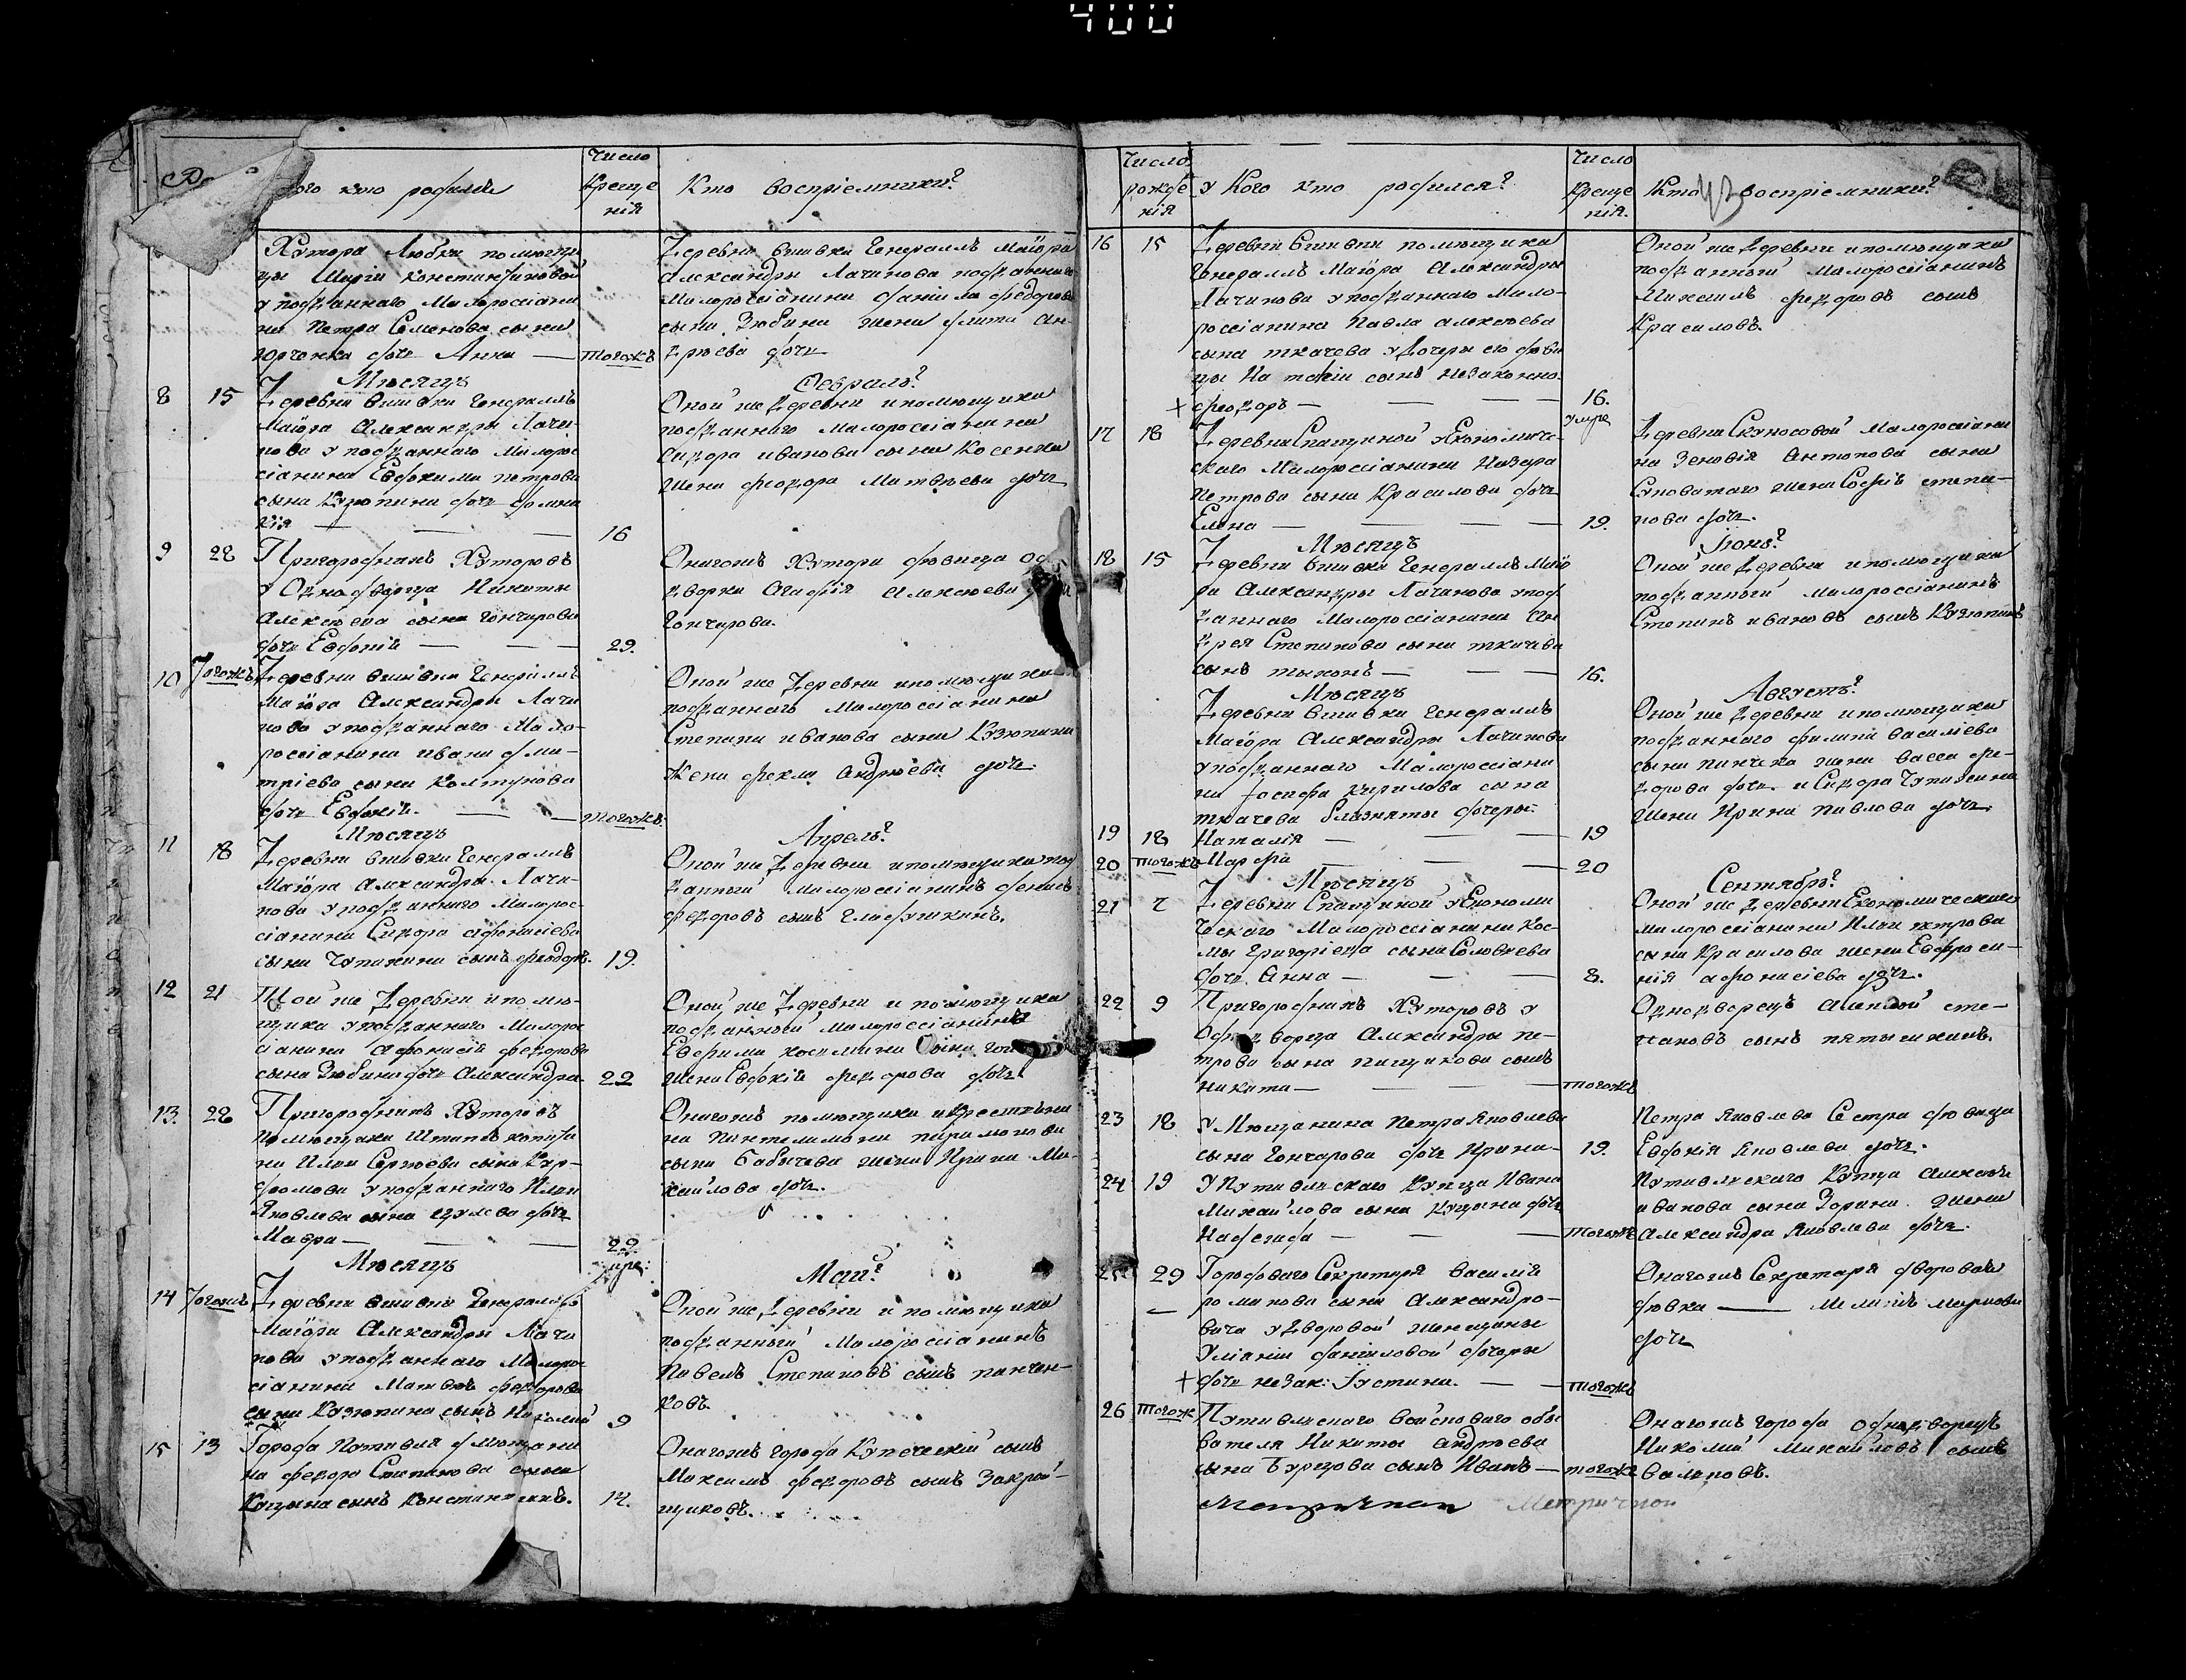 400
Кого кто родился
Число
Крещенія
Кто воспріемники?
Хутора Любки помѣщи
цы Константиновой
у подданнаго Малороссіяни
на Петра Семенова сына
дочь Анна —
тогожъ
Деревни Вшивки Генералъ Маіора
Александра Лачинова подданнаго
Малороссіянина Даніила Федорова
сына Зюбина жена Ан-
дреева дочь
Мѣсяцъ
Февраль?
8 15
Деревни Вшивки Генералъ
Маіора Александра Лачи-
нова у подданнаго Малорос
сіянина Евфима Петрова
сына дочь
кія — — —
16
Оной же Деревни и помѣщика
подданнаго Малороссіянина
Сидора Иванова сына Косенка
жена Феодора Матвѣева дочь
9 28
Пригороднихъ Хуторовъ
у Однодворца Никиты
Алексѣева сына Гончарова
дочь Евдокія — —
29.
Онагожъ Хутора дѣвица Од
дворка Агафія Алексѣева
Гончарова.
10 Тогожъ
Деревни Вшивки Генералъ
Маіора Александра Лачи
нова у подданнаго Мало-
россіянина Ивана Дми-
тріева сына Колтунова
дочь Евдокія. — —
тогожъ.
Оной же Деревни и помѣщика
подданнаго Малороссіянина
Степана Иванова сына Кузюпина
Жена Фекла Андрѣева дочь.
Мѣсяцъ
Апрель?
11 18
Деревни Вшивки Генералъ
Маіора Александра Лачи-
нова у подданнаго Малорос-
сіянина Сидора Афанасіева
сына Чупахина сынъ Феодоръ.
19.
Оной же Деревни и помѣщика под
данный Малороссіянинъ Денисъ
Федоровъ сынъ Глафушкинъ.
12 21
Той же Деревни и помѣ-
щика у подданнаго Малорос
сіянина Афанасія Федорова
сына Зюбина дочь Александра.
22
Оной же Деревни и помѣщика
подданный Малороссіянина
Евфима Космина сына
жена Евдокія Федорова дочь
13. 28
Пригороднихъ Хуторовъ
помѣщика Штапсъ капита
на Ильи Сергѣева сына Кур-
дюмова у подданнаго Ильи
Яковлева сына дочь
Мавра — — —
29.
умре:
Онагожъ помѣщика крестьяни
на Пантелимона Парамонова
сына Бабичева жена Ирина Ми-
хайлова дочь.
Мѣсяцъ
Маій?
14 Тогожъ
Деревни Вшивки Генералъ
Маіора Александра Лачи
нова у подданнаго Малорос
сіянина Матвѣя Федорова
сына Кузюпина сынъ Николай
9
Оной же Деревни и помѣщика
подданный Малороссіянинъ
Павелъ Степановъ сынъ Панчен-
ковъ.
15 13
Города Путивля у мѣщани
на Федора Степанова сына
Кацына сынъ Константинъ.
14.
Онагожъ города Купеческій сынъ
Максимъ Федоровъ сынъ Закрой-
щиковъ.
Число
рожде
нія
у Кого кто родился?
Число
Креще
нія.
Кто воспріемники?
16 15
Деревни Вшивки помѣщика
Генералъ Маіора Александра
Лачинова у подданнаго Мало-
россіянина Павла Алексѣева
сына Ткачева у дочери его дѣви
цы Наталіи сынъ незаконно.
+ Феодоръ — — —
16.
умре
Оной же Деревни и помѣщика
подданный Малороссіянинъ
Максимъ Федоровъ сынъ
Красиловъ.
17 18
Деревни Спащиной у Економиче-
скаго Малороссіянина Назара
Петрова сына Красилова дочь
Елена — — —
19.
Деревни Скуносовой Малороссіяни
на Зеновія Антонова сына
Суноватаго жена Софія степа-
нова дочь.
Мѣсяцъ
Іюнь?
18 15
Деревни Вшивки Генералъ Маіо
ра Александра Лачинова у под
даннаго Малороссіянина Ан
дрея Степанова сына Ткачева
сынъ Тихонъ — — —
16.
Оной же Деревни и помѣщика
подданный малороссіянинъ
Степанъ Ивановъ сынъ Кузюпинъ
Мѣсяцъ
Августъ?
Деревни Вшивки Генералъ
Маіора Александра Лачинова
у подданнаго Малороссіяни
на Іосифа Кирилова сына
Ткачева близняты дочеры:
19 18 Наталія — — — 19
20 тогожъ Марфа — — — 20
Оной же Деревни и помѣщика
подданнаго Филипа Василіева
сына Панчека жена Васса Фе-
дорова дочь. и Сидора Чупахина
жена Ирина Павлова дочь.
Мѣсяцъ
Сентябрь?
21 7
Деревни Спащиной у Економи
ческаго Малороссіянина Кос-
мы Григоріева сына Соловьева
дочь Анна — — —
8.
Оной же Деревни Економическаго
малороссіянина Ильи Петрова
сына Красилова жена Евфроси-
нія Афонасіева дочь.
22 9
Пригороднихъ Хуторовъ у
Однодворца Александра Пе-
трова сына Пищикова сынъ
Никита — — —
тогожъ
Однодворецъ Алексѣй Сте-
пановъ сынъ Пятышкинъ.
23 18
У Мѣщанина Петра Яковлева
сына Гончарова дочь Ирина-
19.
Петра Яковлева Сестра дѣвица
Евдокія Яковлева дочь.
24 19
У Путивльскаго Купца Ивана
Михайлова сына Куцына дочь
Надежда — — —
тогожъ
Путивльскаго Купца Алексѣя
Иванова сына Зорина жена
Александра Яковлева дочь.
25. 29
Городоваго Секретаря Василія
Романова сына Александро-
вича у Дворовой женщины
Уліаніи Даниловой дочеры
+ дочь незак: Іустина. — —
тогожъ
Онагожъ Секретаря дворовая
дѣвка — Маркова
дочь
26 тогож
Путивльскаго войсковаго обы
вателя Никиты Андрѣева
сына Бурцова сынъ Иванъ —
тогожъ
Онагожъ города Однодворецъ
Николай Михайловъ сынъ
Вальковъ.